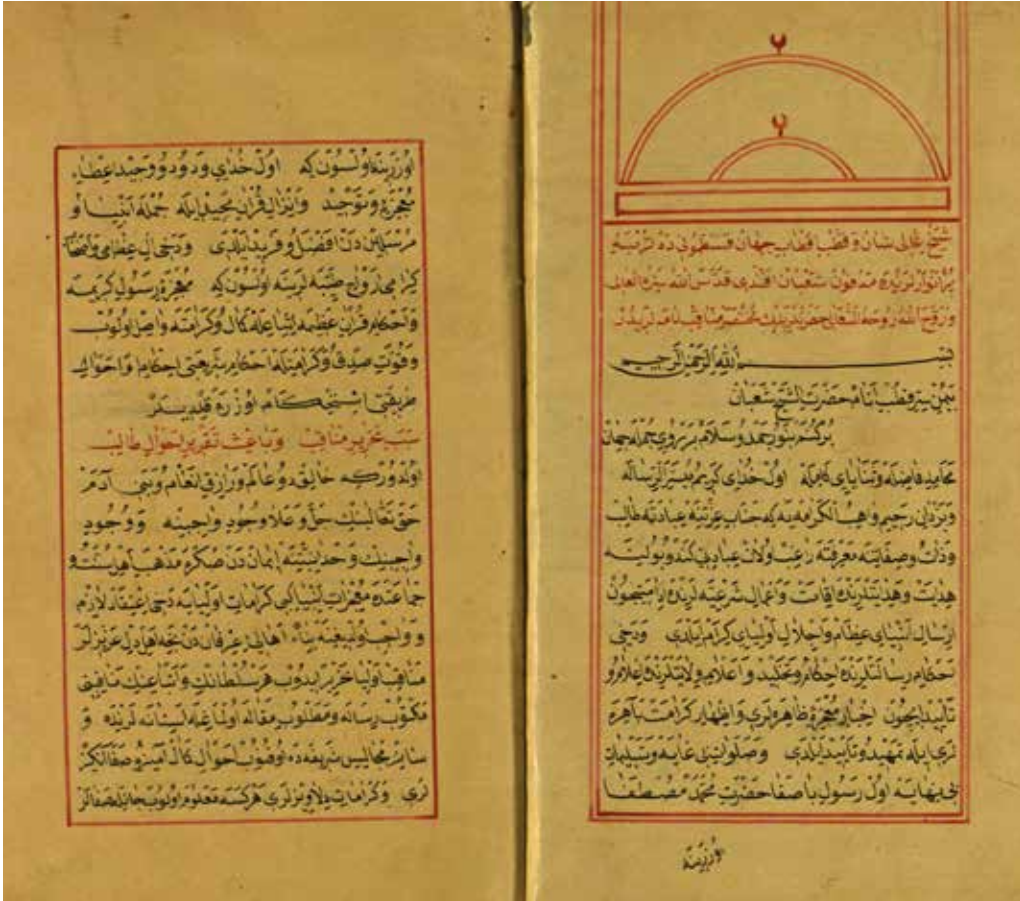 شيخ عالى شان و قطب اقطاب جهان قسطمونى ده تربهٔ
پر انوارلرنده مدفون شعبان افندى قدس الله سره العالى
و روح الله روحه المتعالى حضرتلرينك مختصر مناقبنامه لريدر
بسم الله الرحمن الرحيم
بيمن سر قطب انام حضرت الشيخ شعبان
محامد فاضله و ثنايای كامله اول خدای كريم ميسر الرساله
و يزدان رحيم واهب الكرامه يه كه جناب عزتنه عبادتله طالب
و ذات و صفاتنه معرفته راغب اولان عبادينى كندو يولينه
هدايت و هدايتلرنده اقامت و اعمال شرعيه لرنده ايچون
ارسال انبيای عظام و اجلال اوليای كرام ايلدى و دخى
احكام رسالتلرينه احكام و تحكيد و اعلام ولايتلرينه اعلام و
تأييد ايچون اخبار معجزهٔ ظاهره لرى و اظهار كرامت باهره
لرى ايله تمهيد و تأييد ايلدى و صلوات بى غايه و تسليمات
بى نهايه اول رسول با صفا حضرت محمد مصطفا
اوزرينه
اوزرينه اولسون كه اول خدای ودود و وحيد اعطاء
معجزه و توحيد و انزال قرآن مجيد ايله جمله انبيا و
مرسليندن افضل و فريد ايلدى و دخى ال عظامى و اصحاب
كرامى ازواج طيبه لرينه اولسون كه معجزهٔ رسول كريمه
و احكام قرآن عظيمه اتباعله كمال و كرامته واصل اولوب
و قوت صدق و كرامتله احكام شريعتى احكام و احوال
طريقتى استحكام اوزره قلديلر
سبب تحرير مناقب و باعث تقرير احوال طالب
اولدور كه خالق دو عالم و رازق انعام و بنى آدم
حق تعالينك جل و علا وجود واجبنه و وجود
واجبنك وحدانيتنه ايماندن صكره مذهب اهل سنت و
جماعتده معجزات انبيا كبى كرامات اوليايه دخى اعتقاد لازم
و واجب اولديغنه بناء اهالئ عرفاندن نجه اهل دل عزيزلر
مناقب اوليا تحرير ايدوب هر سلطانك و اتباعينك مناقبى
مكتوب رساله و مطلوب مقاله اولمغله لرنده و
سائر مجالس شريفه ده اوقنوب احوال كمال آميز و صفا انكيز
لرى و كرامات لرى هركسه معلوم اولوب